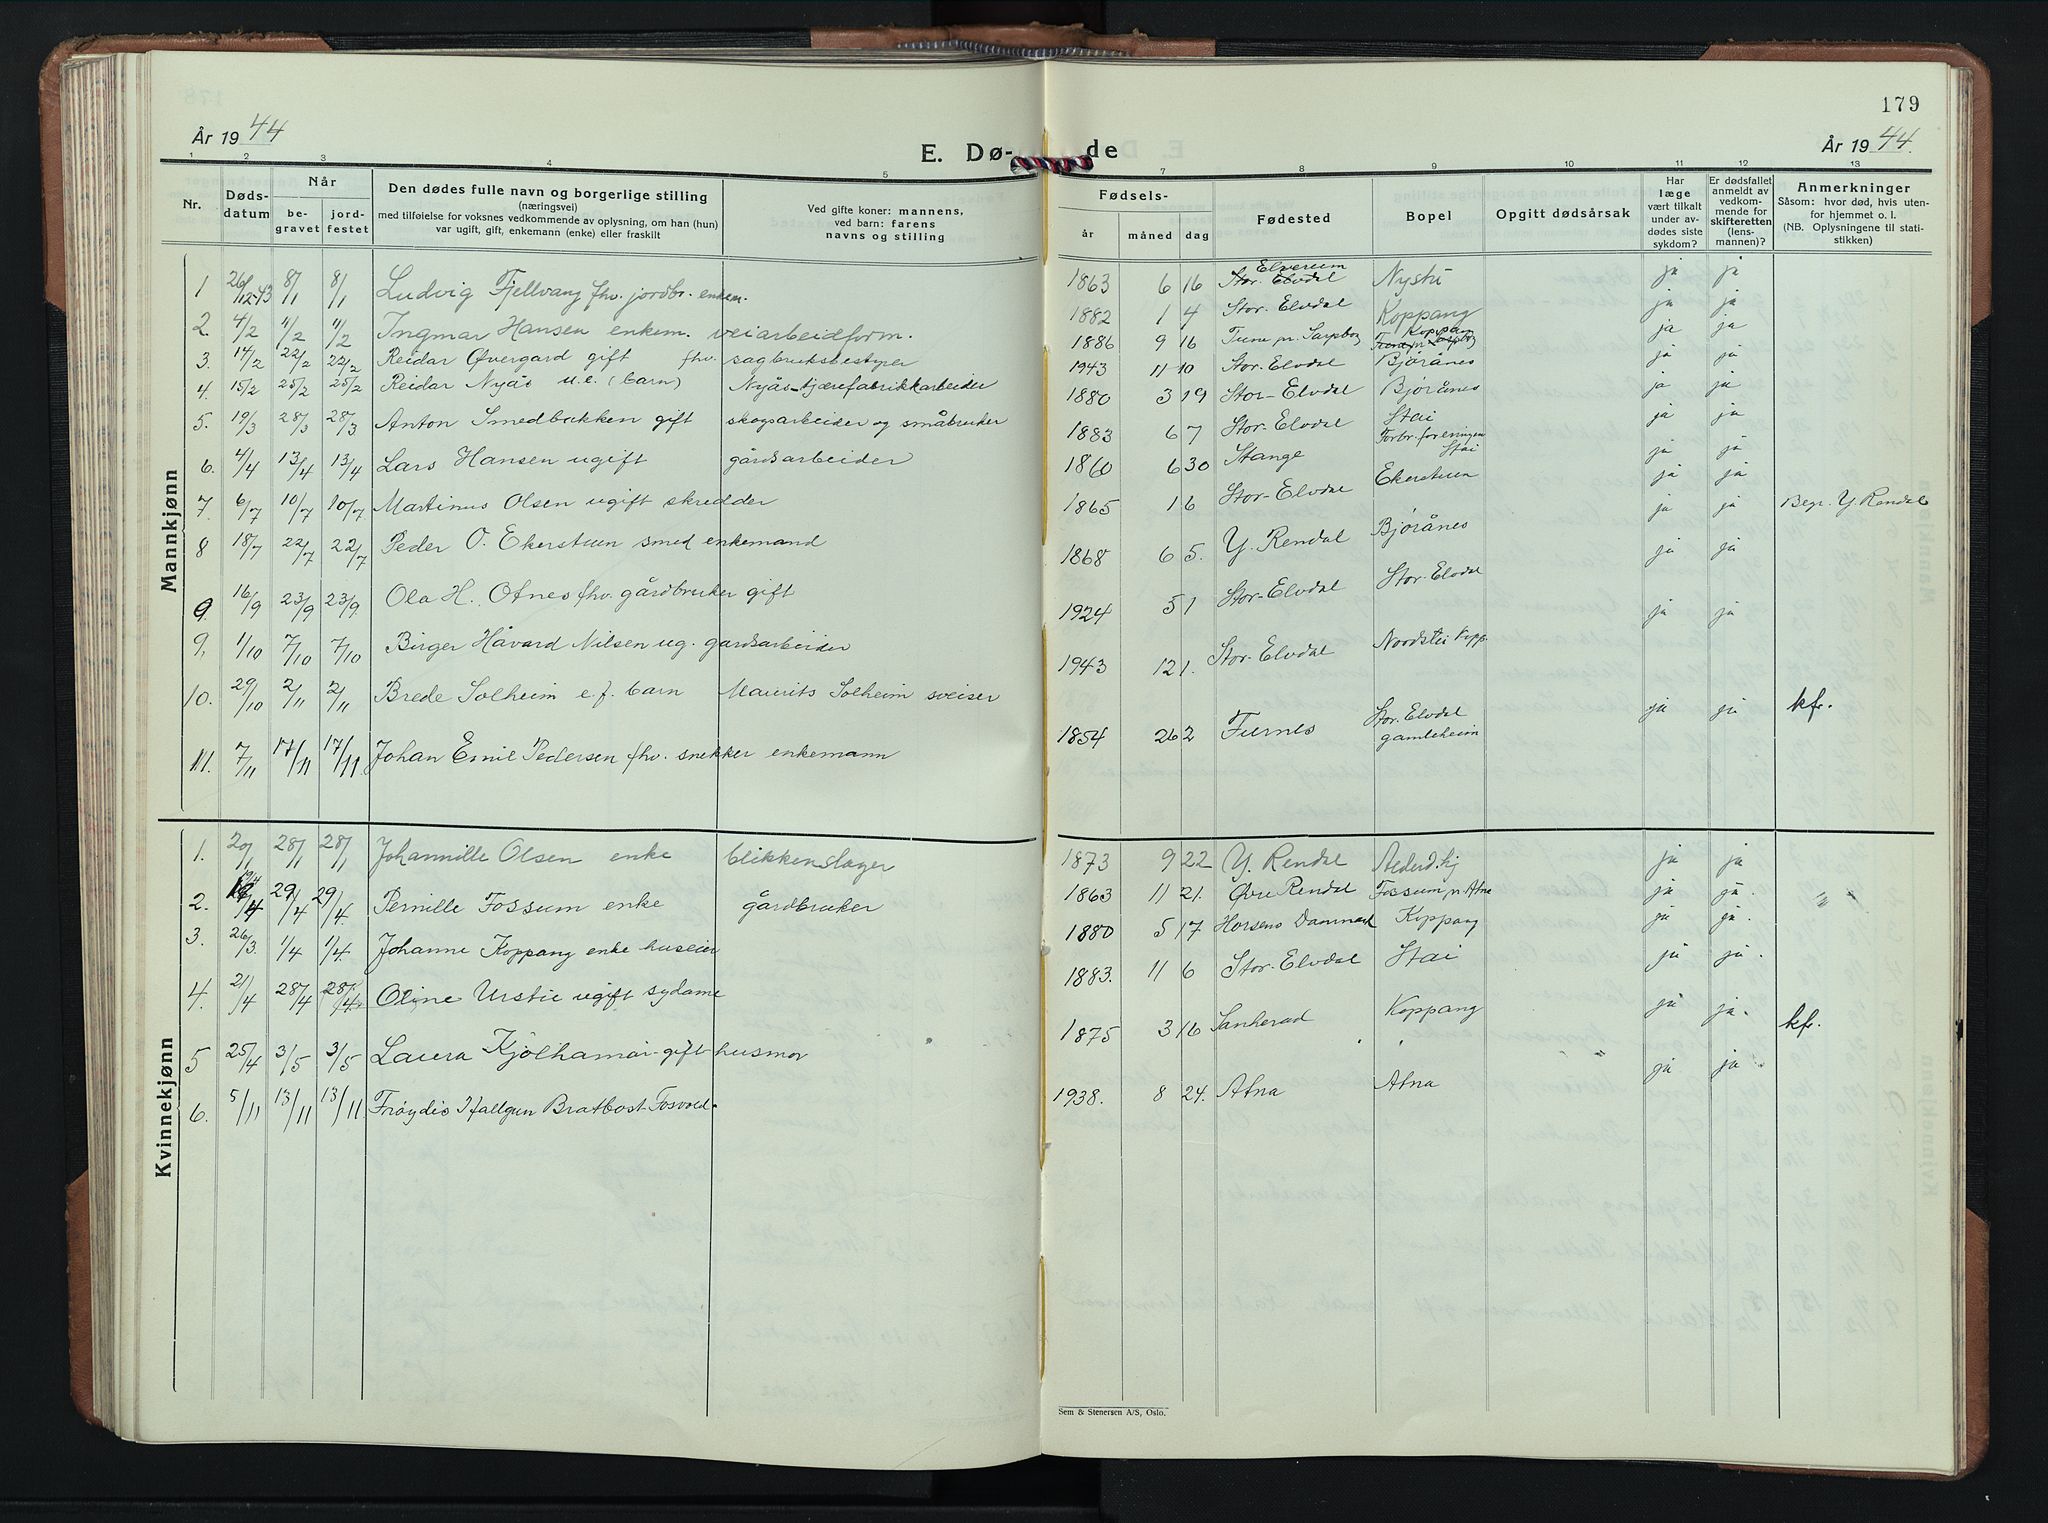 179
År 1944
E. Dø-
de
År 1944.
1 2 3 4 5 7 8 9 10 11 12 13
Nr.
Døds-
datum
Når
be-
gravet
jord-
festet
Den dødes fulle navn og borgerlige stilling
(næringsvei)
med tilføielse for voksnes vedkommende av oplysning, om han (hun)
var ugift, gift, enkemann (enke) eller fraskilt
Ved gifte koner: mannens,
ved barn: farens
navns og stilling
Fødsels-
år måned dag
Fødested
Bopel
Opgitt dødsårsak
Har
læge
vært tilkalt
under av-
dødes siste
sykdom?
Er dødsfallet
anmeldt av
vedkom-
mende for
skifteretten
(lens-
mannen)?
Anmerkninger
Såsom: hvor død, hvis uten-
for hjemmet o. l.
(NB. Oplysningene til stati-
stikken)
Mannkjønn
1 26/12-43 8/1 8/1 Ludvig Fjellvang fhv. jordbr. enkem.
2. 4/2 11/2 11/2 Ingmar Hansen enkem. veiarbeidform.
3. 14/2 22/2 22/2 Reidar Øvergard gift fhv. sagbruksbestyrer
4. 15/2 25/2 25/2 Reidar Nyås u.e. (barn) Nyås-tjærefabrikkarbeider
5. 19/3 28/3 28/3 Anton Smedbakken gift skogsarbeider og småbruker
6. 4/4 13/4 13/4 Lars Hansen ugift gårdsarbeider
7. 6/7 10/7 10/7 Martinus Olsen ugift skredder
8 18/7 22/7 22/7 Peder O. Ekerstuen smed enkemand
9. 16/9 23/9 23/9 Ola H. Otnes fhv. gårdbruker gift
9, 1/10 7/10 7/10 Birger Håvard Nilsen ug. gårdsarbeider
10. 29/10 2/11 2/11 Brede Solheim e.f. barn Maurits Solheim sveiser
11. 7/11 17/11 17/11 Johan Emil Pedersen fhv. snekker enkemann
Elverum
1863 6 16 Stor-Elvdal Nystu ja ja
1882 1 4 Stor-Elvdal Koppang ja ja
Koppang
1886 9 16 Tune pr. Sarpborg Tune pr. Sarpborg ja ja
1943 11 10 Stor-Elvdal Bjørånes ja ja
1880 3 19 Stor-Elvdal Bjørånes ja ja
1883 6 7 Stor-Elvdal Stai ja ja
Forbr.foreningen
Stai
1860 6 30 Stange ja ja
1865 1 6 Stor-Elvdal Ekerstuen ja ja
1868 6 5. Y. Rendal Bjørånes ja ja Begr. Y. Rendal
1924 5 1 Stor-Elvdal Stor-Elvdal ja ja
1943 12 1. Stor-Elvdal Nordstu Kopp. ja ja
1854 26 2 Furnes Stor-Elvdal
gamleheim ja ja kfr.
Kvinnekjønn
1. 20/1 28/1 28/1 Johannille Olsen enke blikkenslager
2. 19/4 29/4 29/4 Pernille Fossum enke gårdbruker
3. 26/3 1/4 1/4 Johanne Koppang enke huseier
4. 21/4 28/4 28/4 Oline Urstie ugift sydame
5 25/4 3/5 3/5 Laura Kjølhamar-gift husmor
6. 5/11 13/11 13/11 Frøydis Hallgun Bratbost Fosvold.
1873 9 22 Y. Rendal Alderd.hj ja ja
1863 11 21. Øvre Rendal Fossum pr Atna ja ja.
1880 5 17 Horsens Danmark Koppang ja ja.
1883. 11 6 Stor-Elvdal Stai ja ja.
1875 3 16 Sanherad Koppang ja ja. kfr.
1938. 8 24. Atna Atna ja ja
Sem & Stenersen A/S, Oslo.